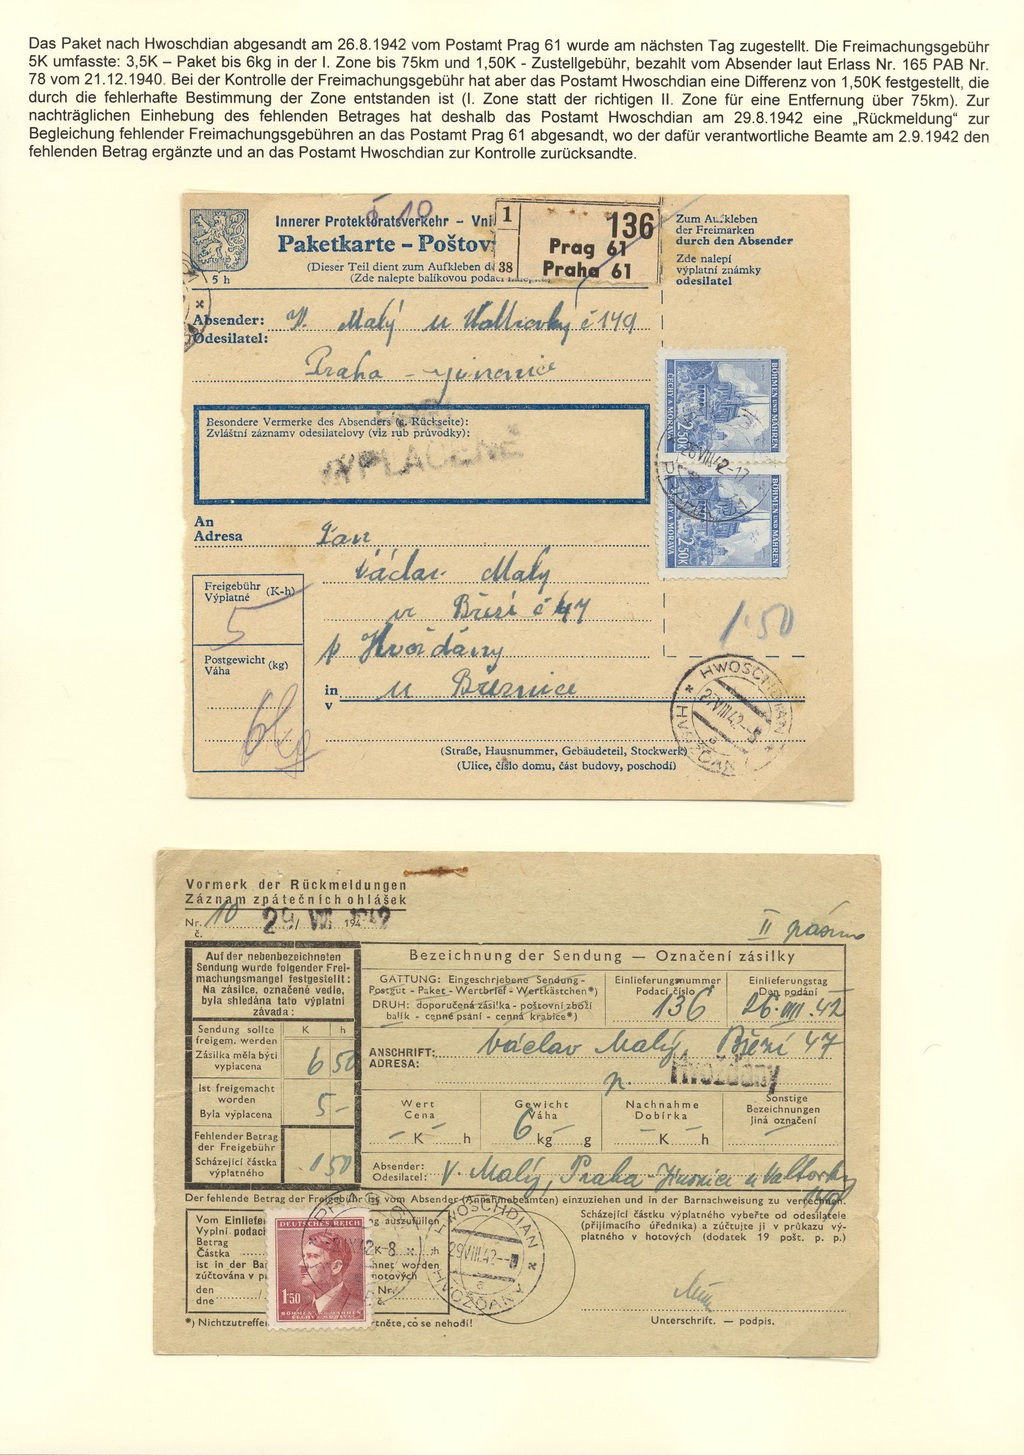 Das Paket nach Hwoschdian abgesandt am 26.8.1942 vom Postamt Prag 61 wurde am nächsten Tag zugestellt. Die Freimachungsgebühr
5K umfasste: 3,5K – Paket bis 6kg in der I. Zone bis 75km und 1,50K - Zustellgebühr, bezahlt vom Absender laut Erlass Nr. 165 PAB Nr.
78 vom 21.12.1940. Bei der Kontrolle der Freimachungsgebühr hat aber das Postamt Hwoschdian eine Differenz von 1,50K festgestellt, die
durch die fehlerhafte Bestimmung der Zone entstanden ist (I. Zone statt der richtigen II. Zone für eine Entfernung über 75km). Zur
nachträglichen Einhebung des fehlenden Betrages hat deshalb das Postamt Hwoschdian am 29.8.1942 eine „Rückmeldung" zur
Begleichung fehlender Freimachungsgebühren an das Postamt Prag 61 abgesandt, wo der dafür verantwortliche Beamte am 2.9.1942 den
fehlenden Betrag ergänzte und an das Postamt Hwoschdian zur Kontrolle zurücksandte.
5 h
Innerer Protektoratsverkehr – Vni
Paketkarte – Poštov
(Dieser Teil dient zum Aufkleben d
(Zde nalepte balíkovou podac
1
38
136
Prag 61
Praha 61
Zum Aufkleben
der Freimarken
durch den Absender
Zde nalepí
výplatní známky
odesilatel
Absender: V. Malý u Waltrovky č 149
Odesilatel:
Praha – Jinonice
Besondere Vermerke des Absenders (s. Rückseite):
Zvláštní záznamy odesilatelovy (viz rub průvodky):
VYPLACENĚ
BÖHMEN UND MÄHREN
ČECHY A MORAVA
2.50K
26 VIII 42-17
BÖHMEN UND MÄHREN
ČECHY A MORAVA
2.50K
An
Adresa
Pan
Václav Malý
ve Březí č 47
p Hvožďany
in u Březnice
v
Freigebühr (K-h)
Výplatné
5
Postgewicht (kg)
Váha
6 kg
1·50
HWOSCHDIAN
27 VIII 42
a
HVOŽĎANY
(Straße, Hausnummer, Gebäudeteil, Stockwerk)
(Ulice, číslo domu, část budovy, poschodí)
Vormerk der Rückmeldungen
Záznam zpátečních ohlášek
Nr. 10 29/ VIII 1942
č.
II pásmo
Auf der nebenbezeichneten
Sendung wurde folgender Frei-
machungsmangel festgestellt:
Na zásilce, označené vedle,
byla shledána tato výplatní
závada:
Bezeichnung der Sendung — Označení zásilky
GATTUNG: Eingeschriebene Sendung -
Postgut - Paket - Wertbrief - Wertkästchen*)
DRUH: doporučená zásilka - poštovní zboží
balík - cenné psání - cenná krabice*)
Einlieferungsnummer
Podací číslo
136
Einlieferungstag
Den podání
26·VIII·42
Sendung sollte
freigem. werden
Zásilka měla býti
vyplacena
K h
6 50
Ist freigemacht
worden
Byla vyplacena
5–
Fehlender Betrag
der Freigebühr
Scházející částka
výplatného
1 50
ANSCHRIFT: Václav Malý, Březí 47
ADRESA:
p. Hvožďany
Wert
Cena
— K — h
Gewicht
Váha
6 kg g
Nachnahme
Dobírka
— K — h
Sonstige
Bezeichnungen
Jiná označení
—
Absender: V. Malý, Praha-Jinonice u Valtrovky
Odesilatel:
149
Der fehlende Betrag der Freigebühr ist vom Absender (Annahmebeamten) einzuziehen und in der Barnachweisung zu verrechnen.
Scházející částku výplatného vyberte od odesilatele
(přijímacího úředníka) a zúčtujte ji v průkazu vý-
platného v hotových (dodatek 19 pošt. p. p.)
Vom Einliefe
ng auszufüllen
Vyplní podací
Betrag
Částka
h
ist in der Ba
hnet worden
zúčtována v p
hotových
den
Nr.
dne
č.
*) Nichtzutreffe
tněte, co se nehodí!
DEUTSCHES REICH
1.50
BÖHMEN UND MÄHREN
HWOSCHDIAN
29 VIII 42
a
HVOŽĎANY
Unterschrift. — podpis.